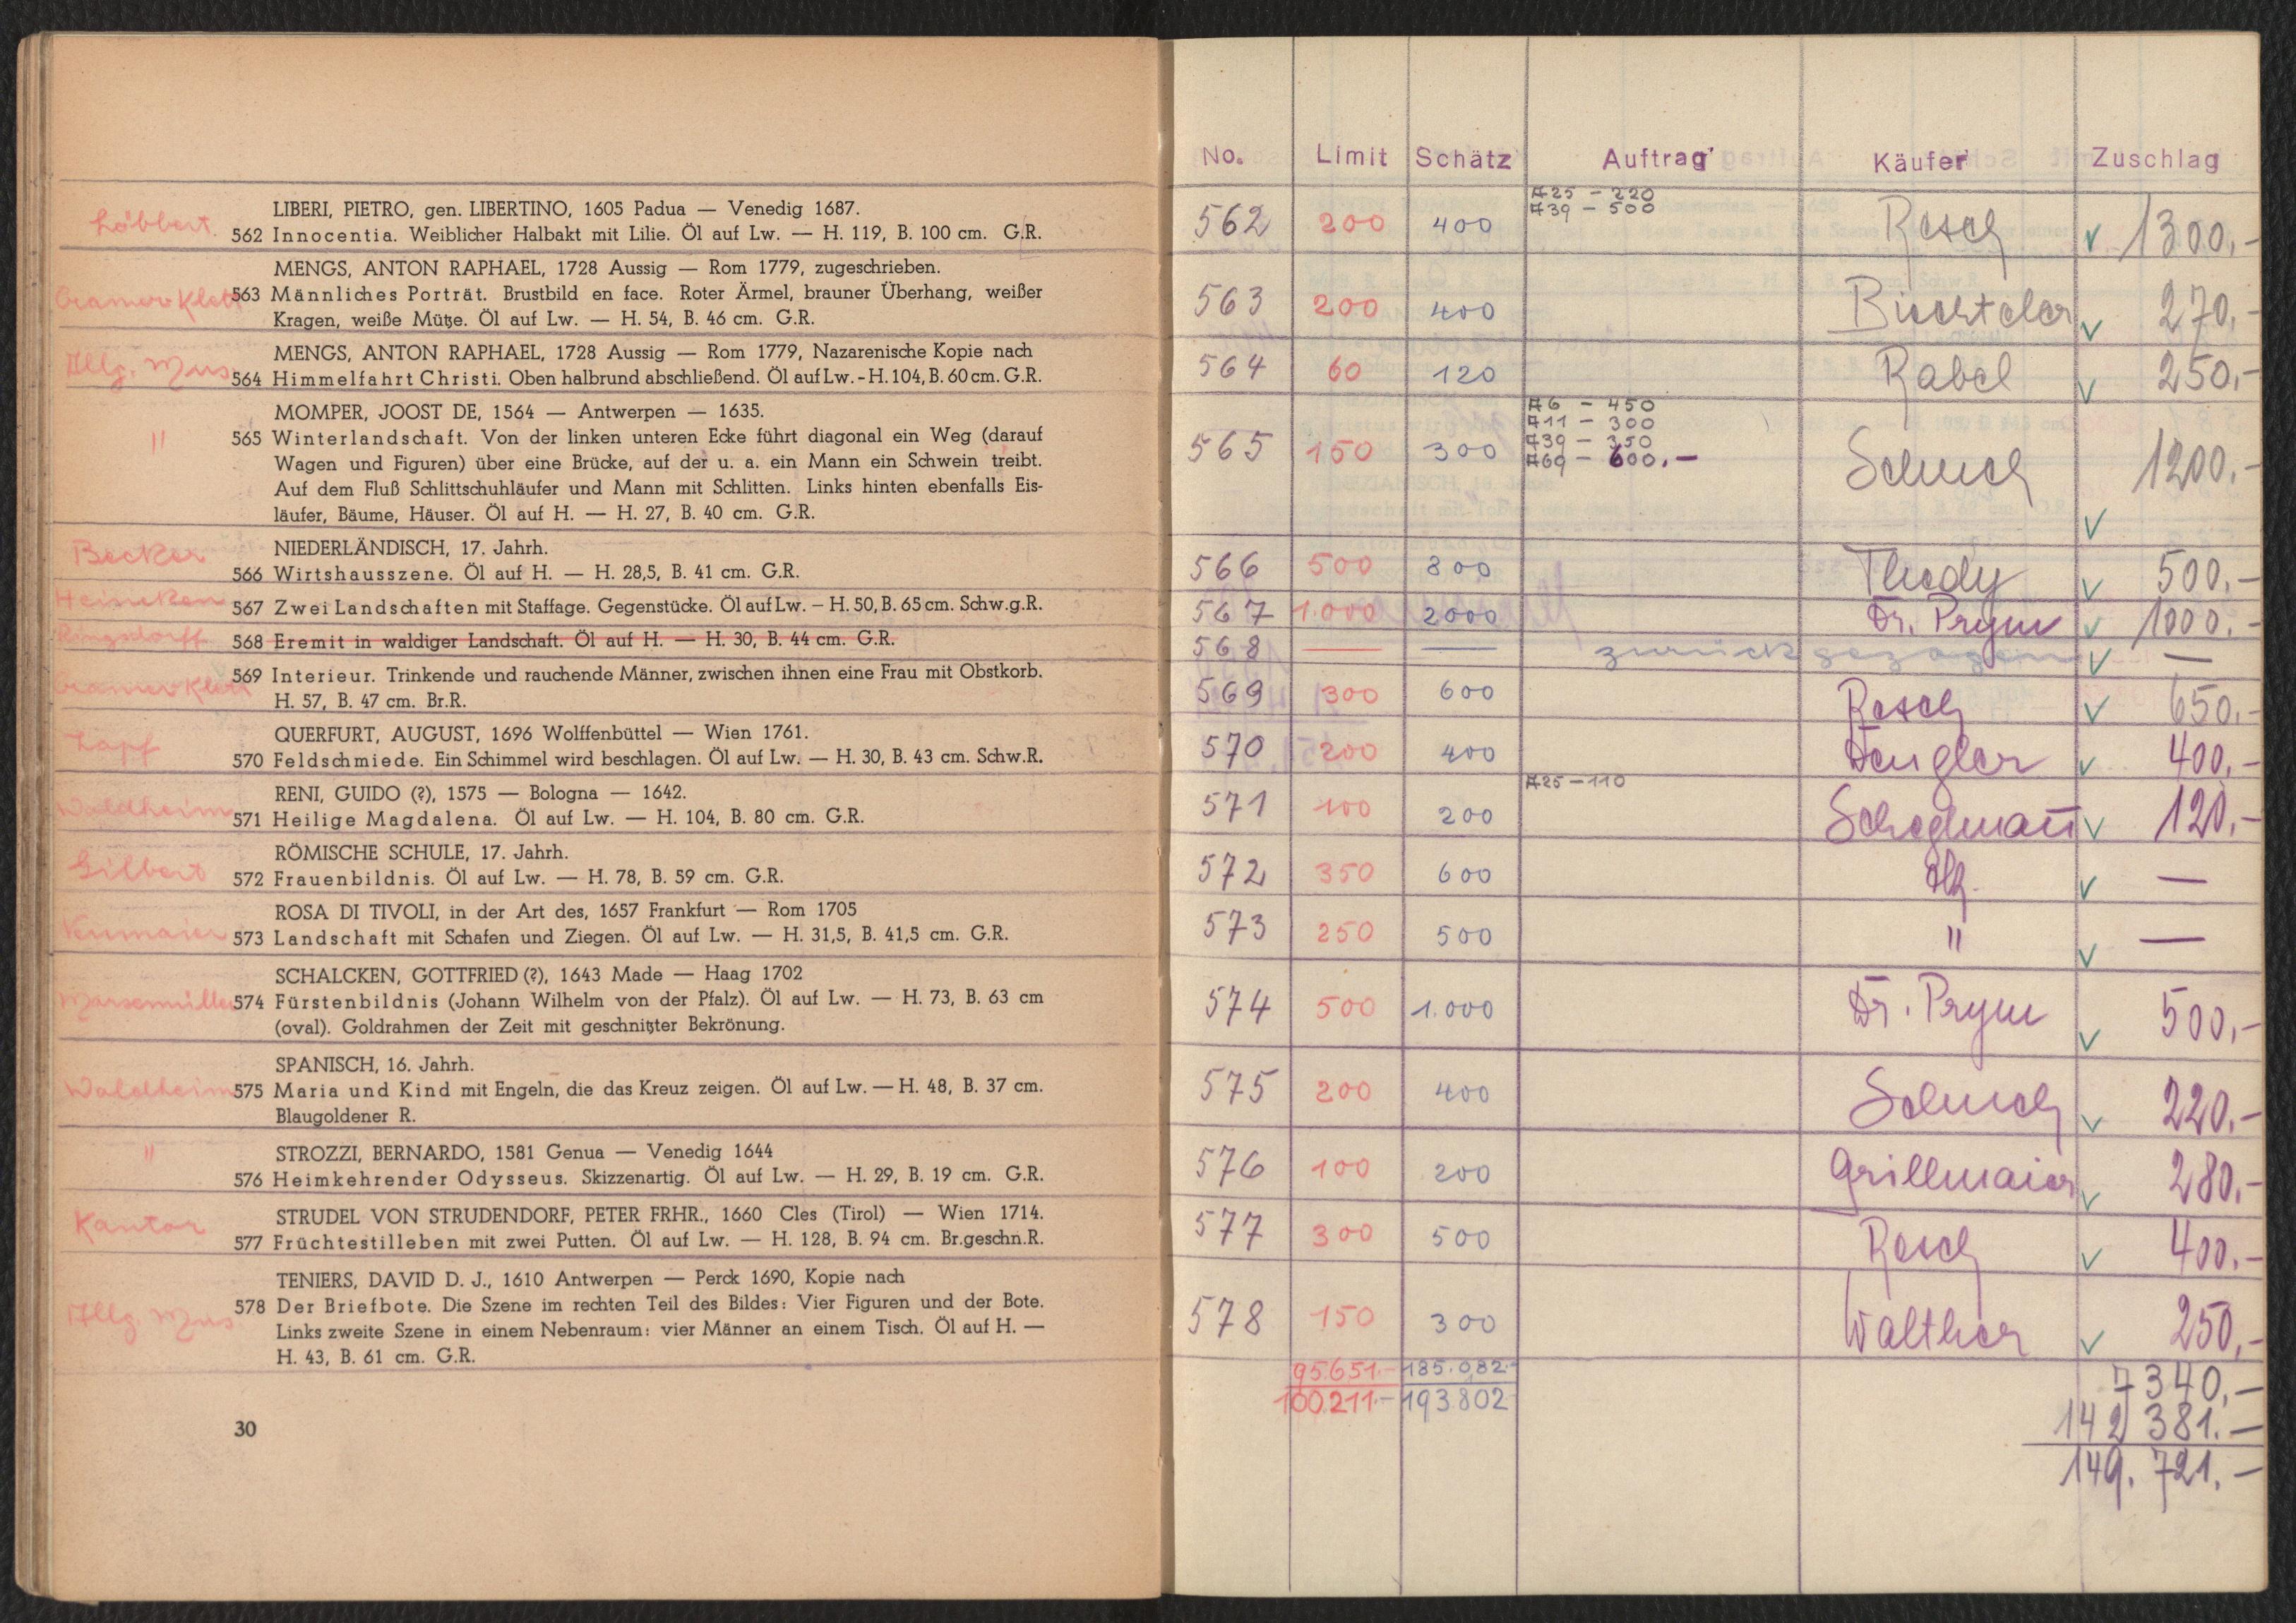 Löbbert
LIBERI, PIETRO, gen. LIBERTINO, 1605 Padua — Venedig 1687.
562 Innocentia. Weiblicher Halbakt mit Lilie. Öl auf Lw. — H. 119, B. 100 cm. G.R.
MENGS, ANTON RAPHAEL, 1728 Aussig — Rom 1779, zugeschrieben.
Cramer Klett
563 Männliches Porträt. Brustbild en face. Roter Ärmel, brauner Überhang, weißer
Kragen, weiße Mütze. Öl auf Lw. — H. 54, B. 46 cm. G.R.
Allg. Mus
MENGS, ANTON RAPHAEL, 1728 Aussig — Rom 1779, Nazarenische Kopie nach
564 Himmelfahrt Christi. Oben halbrund abschließend. Öl auf Lw. - H. 104, B. 60 cm. G.R.
MOMPER, JOOST DE, 1564 — Antwerpen — 1635.
"
565 Winterlandschaft. Von der linken unteren Ecke führt diagonal ein Weg (darauf
Wagen und Figuren) über eine Brücke, auf der u. a. ein Mann ein Schwein treibt.
Auf dem Fluß Schlittschuhläufer und Mann mit Schlitten. Links hinten ebenfalls Eis-
läufer, Bäume, Häuser. Öl auf H. — H. 27, B. 40 cm. G.R.
Becker
NIEDERLÄNDISCH, 17. Jahrh.
566 Wirtshausszene. Öl auf H. — H. 28,5, B. 41 cm. G.R.
Heineken
567 Zwei Landschaften mit Staffage. Gegenstücke. Öl auf Lw. – H. 50, B. 65 cm. Schw.g.R.
Ringsdorff
568 Eremit in waldiger Landschaft. Öl auf H. — H. 30, B. 44 cm. G.R.
Cramer Klett
569 Interieur. Trinkende und rauchende Männer, zwischen ihnen eine Frau mit Obstkorb.
H. 57, B. 47 cm. Br.R.
QUERFURT, AUGUST, 1696 Wolffenbüttel — Wien 1761.
570 Feldschmiede. Ein Schimmel wird beschlagen. Öl auf Lw. — H. 30, B. 43 cm. Schw.R.
Waldheim
RENI, GUIDO (?), 1575 — Bologna — 1642.
571 Heilige Magdalena. Öl auf Lw. — H. 104, B. 80 cm. G.R.
Gilbert
RÖMISCHE SCHULE, 17. Jahrh.
572 Frauenbildnis. Öl auf Lw. — H. 78, B. 59 cm. G.R.
Neumaier
ROSA DI TIVOLI, in der Art des, 1657 Frankfurt — Rom 1705
573 Landschaft mit Schafen und Ziegen. Öl auf Lw. — H. 31,5, B. 41,5 cm. G.R.
SCHALCKEN, GOTTFRIED (?), 1643 Made — Haag 1702
574 Fürstenbildnis (Johann Wilhelm von der Pfalz). Öl auf Lw. — H. 73, B. 63 cm
(oval). Goldrahmen der Zeit mit geschnitzter Bekrönung.
SPANISCH, 16. Jahrh.
Waldheim
575 Maria und Kind mit Engeln, die das Kreuz zeigen. Öl auf Lw. — H. 48, B. 37 cm.
Blaugoldener R.
"
STROZZI, BERNARDO, 1581 Genua — Venedig 1644
576 Heimkehrender Odysseus. Skizzenartig. Öl auf Lw. — H. 29, B. 19 cm. G.R.
Kantor
STRUDEL VON STRUDENDORF, PETER FRHR., 1660 Cles (Tirol) — Wien 1714.
577 Früchtestilleben mit zwei Putten. Öl auf Lw. — H. 128, B. 94 cm. Br.geschn.R.
TENIERS, DAVID D. J., 1610 Antwerpen — Perck 1690, Kopie nach
Allg. Mus
578 Der Briefbote. Die Szene im rechten Teil des Bildes: Vier Figuren und der Bote.
Links zweite Szene in einem Nebenraum: vier Männer an einem Tisch. Öl auf H. —
H. 43, B. 61 cm. G.R.
30
No. Limit Schätz Auftrag Käufer Zuschlag
A25 – 220
A39 – 500
562 200 400 Resch √ 1300,-
563 200 400 Biechteler √ 270,-
564 60 120 Rabel √ 250,-
A6 – 450
A11 – 300
A39 – 350
A69 – 600.–
565 150 300 Schuch √ 1200.-
566 500 800 Thedy √ 500,-
567 1.000 2000 Dr. Prym √ 1000.-
568 — — zurückgezogen √ —
569 300 600 Resch √ 650.-
570 200 400 Dengler √ 400,-
A25 – 110
571 100 200 Scheglmann √ 120,-
572 350 600 √ —
573 250 500 " √ —
574 500 1.000 Dr. Prym √ 500,-
575 200 400 Schuch √ 220.-
576 100 200 Grillmaier √ 280.-
577 300 500 Resch √ 400.-
578 150 300 Walther √ 250,-
95.651.- 185.082.- 7340,-
100.211.- 193802 142 381.-
149.721.-